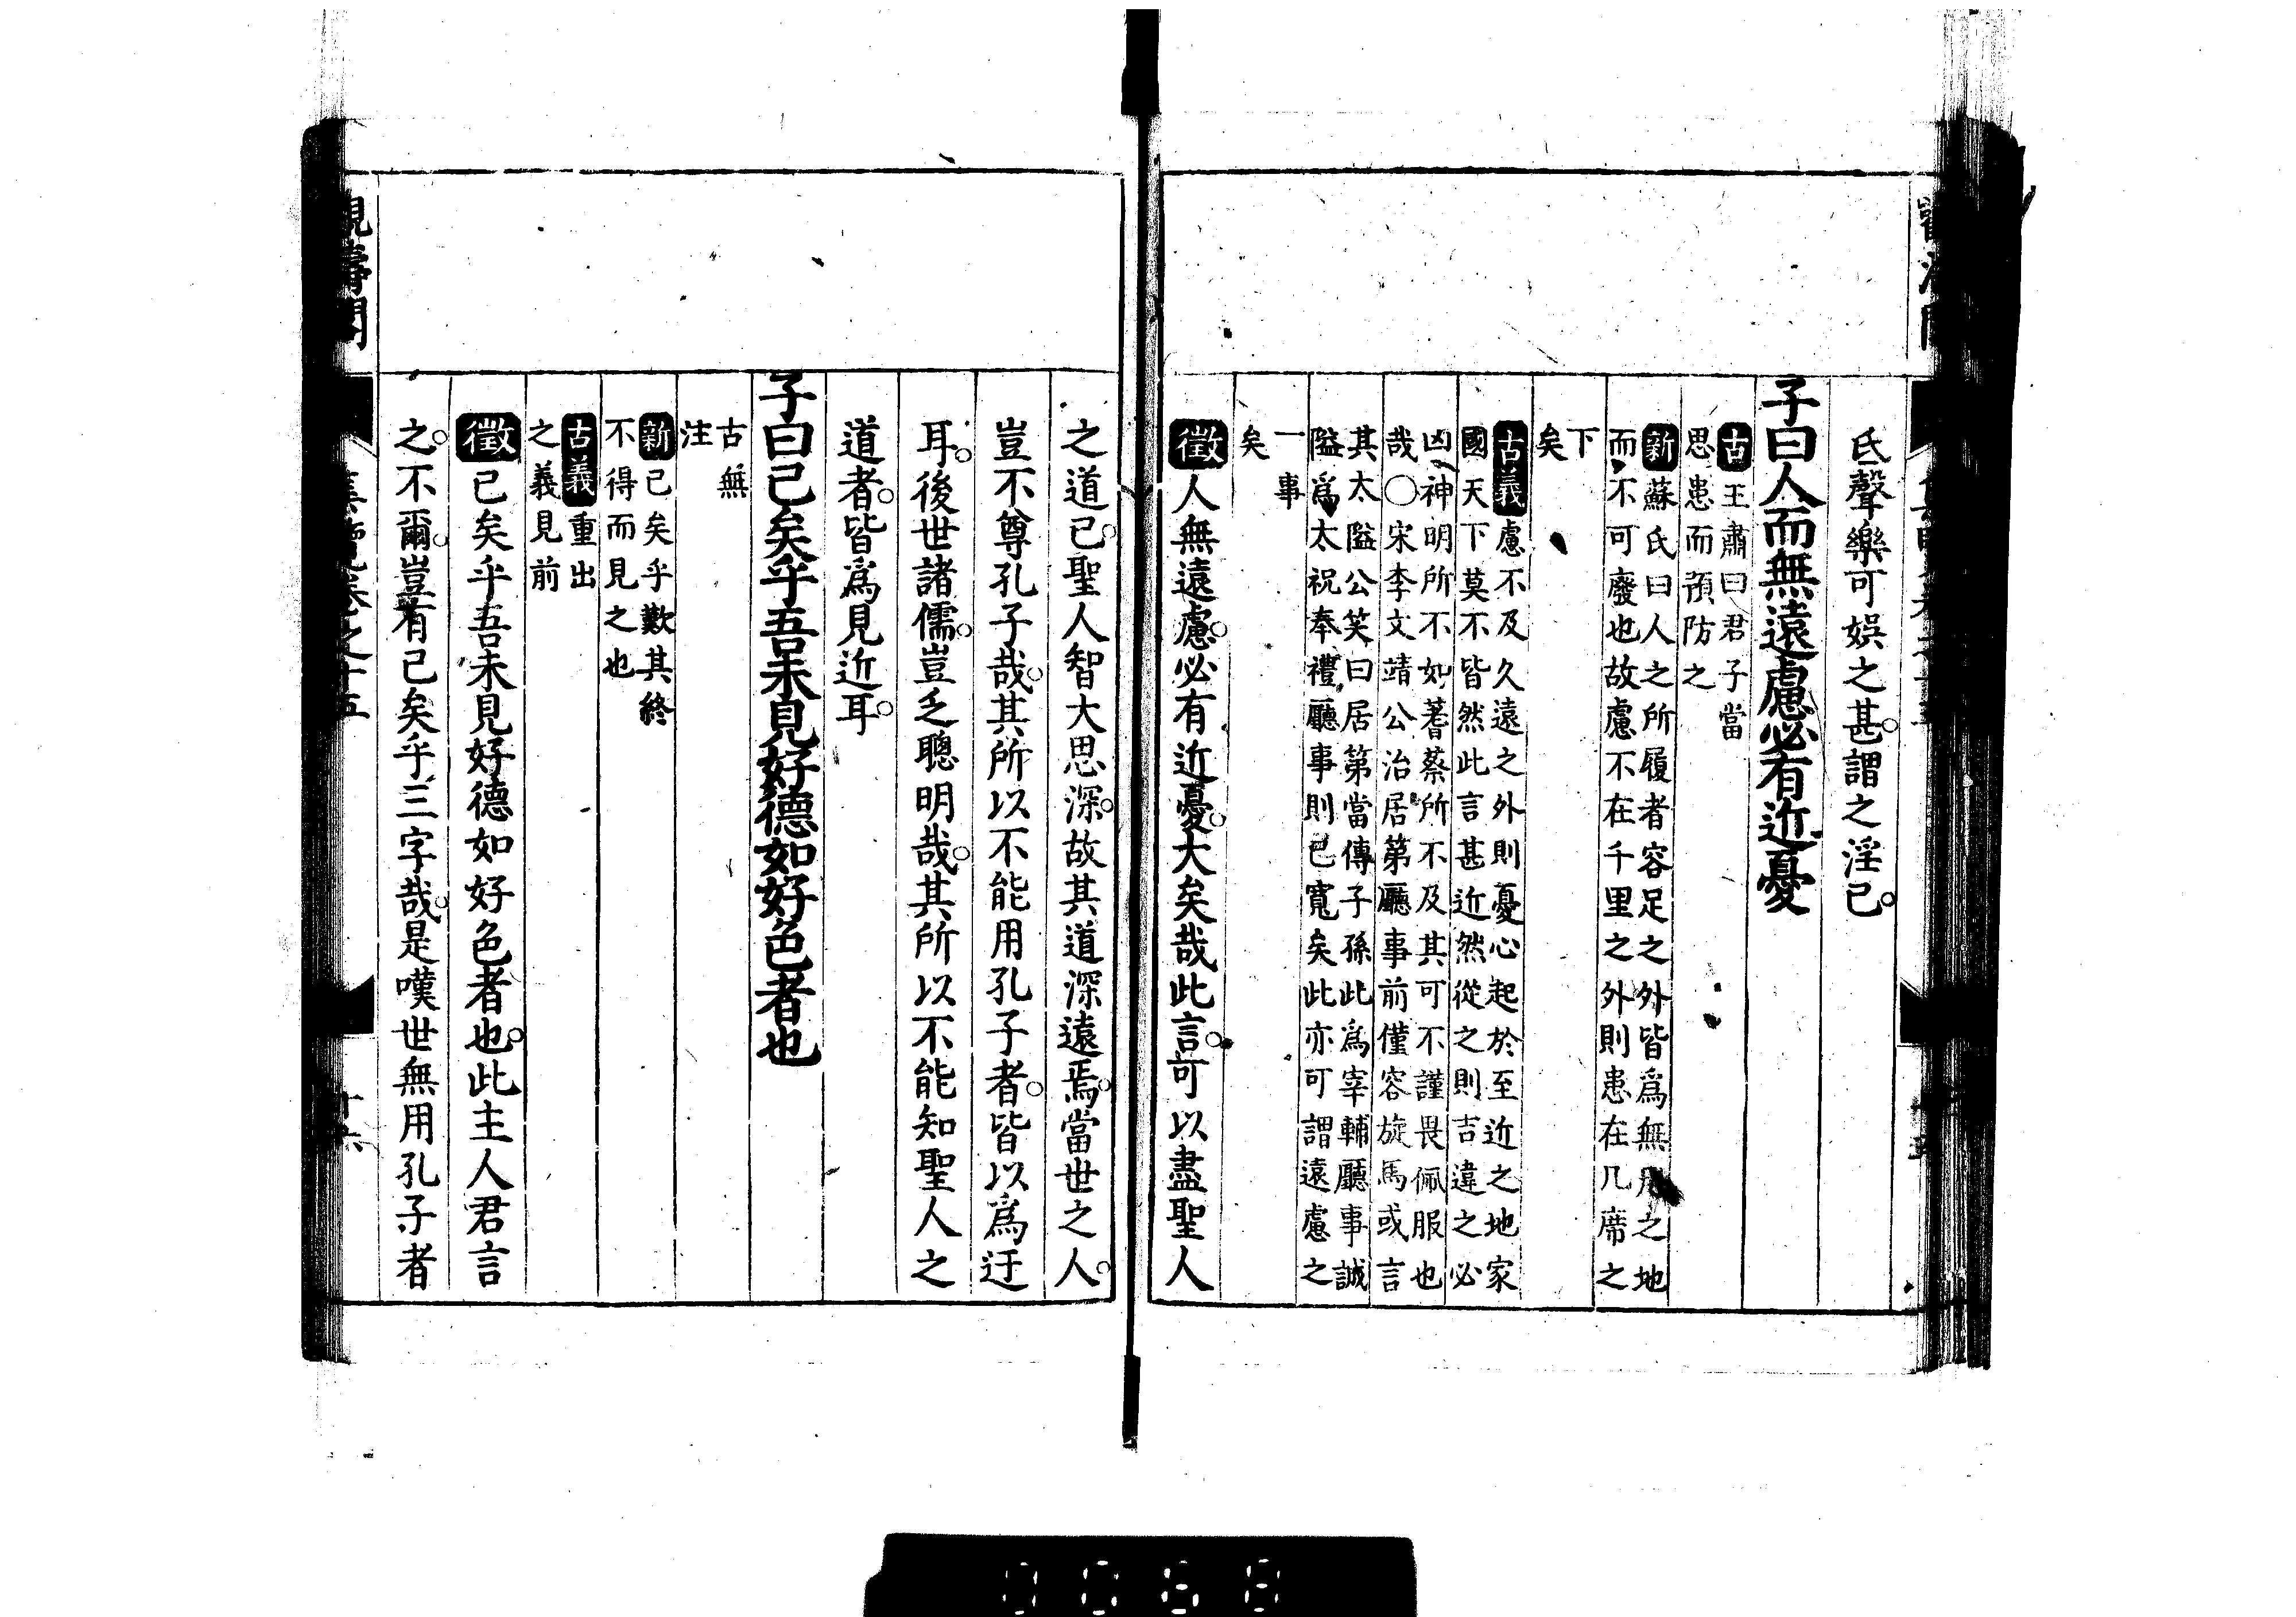 氏聲樂可娛之甚謂之淫已
子曰人而無遠慮必有近憂
古王肅曰君子當
思患而預防之
新蘇氏曰人之所履者容足之外皆爲無用之地
而不可廢也故慮不在千里之外則患在几席之
下
矣
古義慮不及久遠之外則憂心起於至近之地家
國天下莫不皆然此言甚近然從之則吉違之必
凶神明所不如蓍蔡所不及其可不謹畏佩服也
哉○宋李文靖公治居第廳事前僅容旋馬或言
其太隘公笑曰居第當傳子孫此爲宰輔廳事誠
隘爲太祝奉禮廳事則已寬矣此亦可謂遠慮之
一事
矣
徵人無遠慮必有近憂大矣哉此言可以盡聖人
之道已聖人智大思深故其道深遠焉當世之人
豈不尊孔子哉其所以不能用孔子者皆以爲迂
耳後世諸儒豈乏聰明哉其所以不能知聖人之
道者皆爲見近耳
子曰已矣乎吾未見好德如好色者也
古無
注
新已矣乎歎其終
不得而見之也
古義重出
之義見前
徵已矣乎吾未見好德如好色者也此主人君言
之不爾豈有已矣乎三字哉是嘆世無用孔子者
觀濤閣
集覽卷之十五
十六
0068